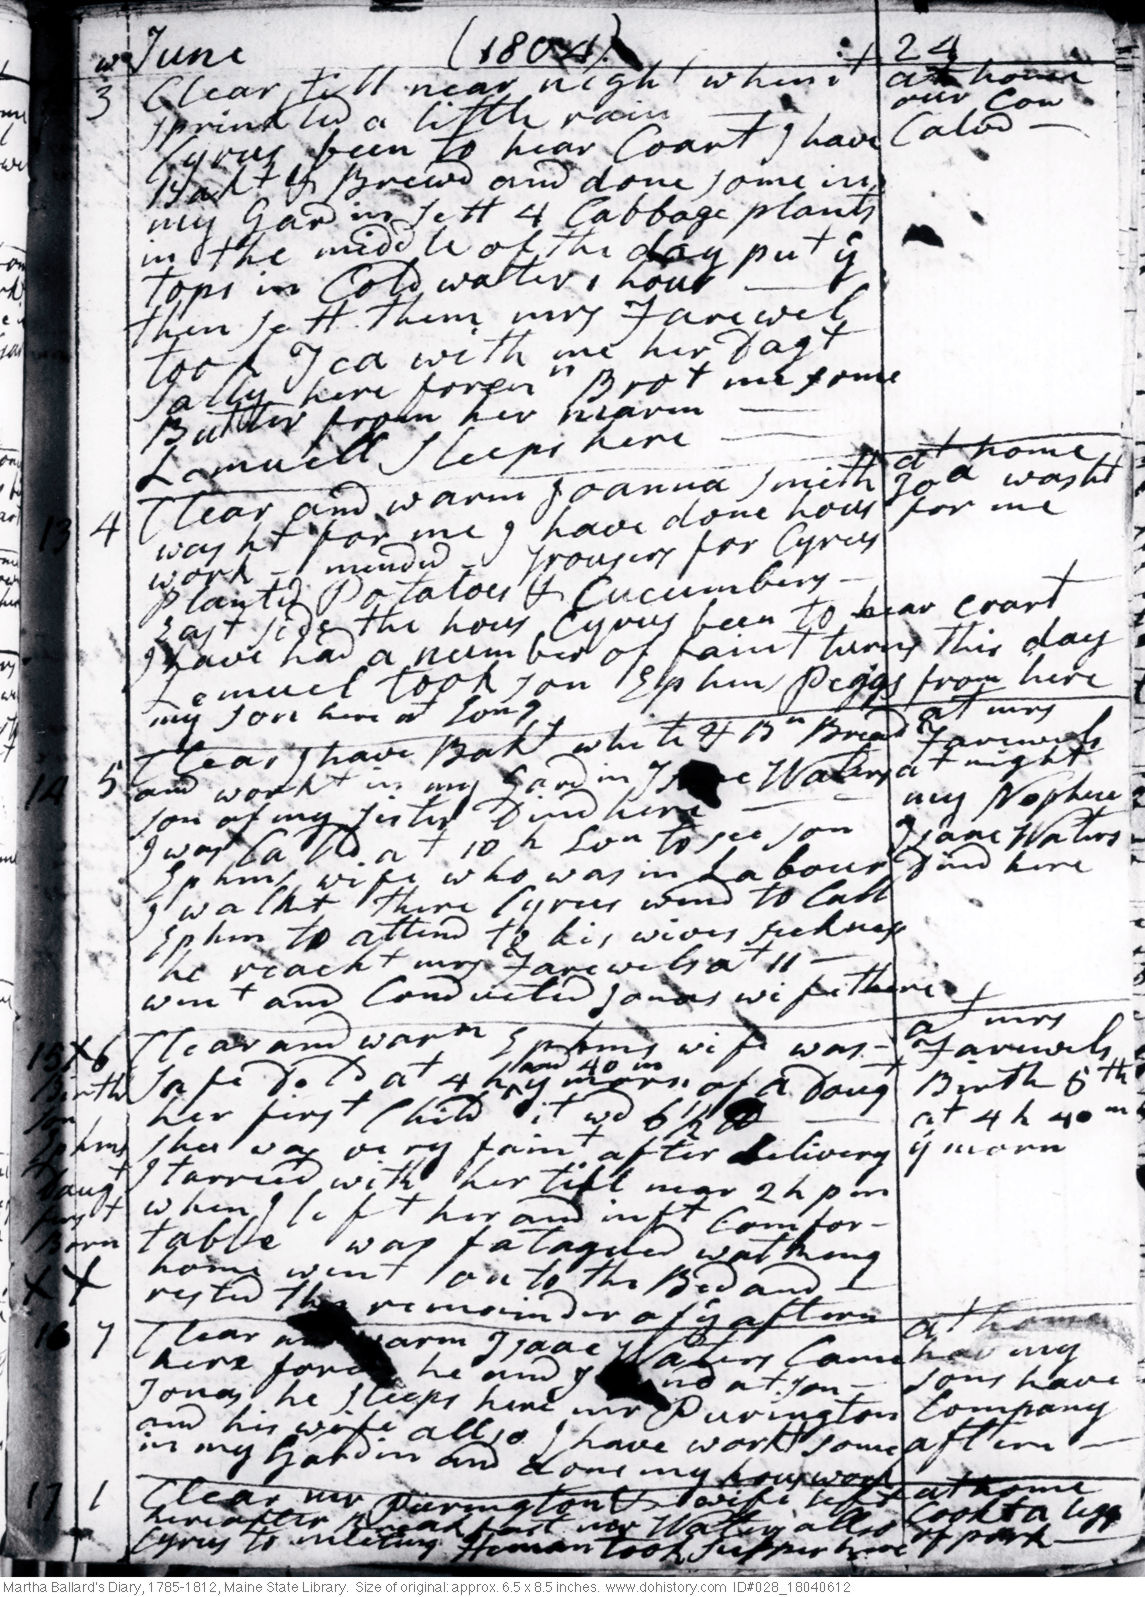 June (1804) 24
3 Clear till near night when it at home
sprinkled a little rain our Cow
Cyrus been to hear Coart I have Calvd
Bakt & Brewd and done some in
my Gardin sett 4 Cabbage plants
in the middle of the day put ye
tops in Cold watter 1 hour
then sett them mrs Farewel
took Tea with me her Dagt
Sally here foren n Brot me some
Butter from her marm
Lemuell Sleeps here
13 4 Clear and warm Joanna Smith at home
washt for me I have done hous Joa washt
work mended Trousers for Cyrus for me
planted Potatoes & Cucumbers
East side the hous Cyrus been to hear Coart
I have had a number of faint turns this day
Lemuel took son Ephm Piggs from here
my son here at Long
14 5 Clear I have Bakt white & Bn Bread at mrs
and workt in my Gardin Isaac Waters Farewels
son of my sister Dind here at night
I was Calld at 10 h Evn to see son my Nephew
Ephms wife who was in Labour Isaac Waters
I walkt there Cyrus wend to Call Dind here
Ephm to attend to his wives sickness
he reacht mrs Farewels at 11
went and Conducted Jonas wife there
15 X 6 Clear and warm Ephms wife was at mrs
Birth safe Dld at 4 h and 40 m y morn of a Doug Farewels
son her first Child it wd 6 ½ Birth 5th
Ephms shee was very faint after Delivery at 4 h 40 m
Daugt I tarried with her till near 2 h pm y morn
first when I left her and inft Comfor-
Born table was fatagued walking
X X home went on to the Bed and
rested the remainder of y aftern
16 7 Clear and warm Isaac Waters Came at home
here foren he and I Dind at son hav my
Jonas he sleeps here mr Purington sons have
and his wife allso I have workt some Company
in my Gardin and done my houswork aftern
17 1 Clear mr Purington & wife left at home
here after Breakfast mr Waters allso Cookt a legg
Cyrus to meeting Heman took supper here of pork
Martha Ballard's Diary, 1785-1812, Maine State Library. Size of original: approx. 6.5 x 8.5 inches. www.dohistory.com ID#028_18040612